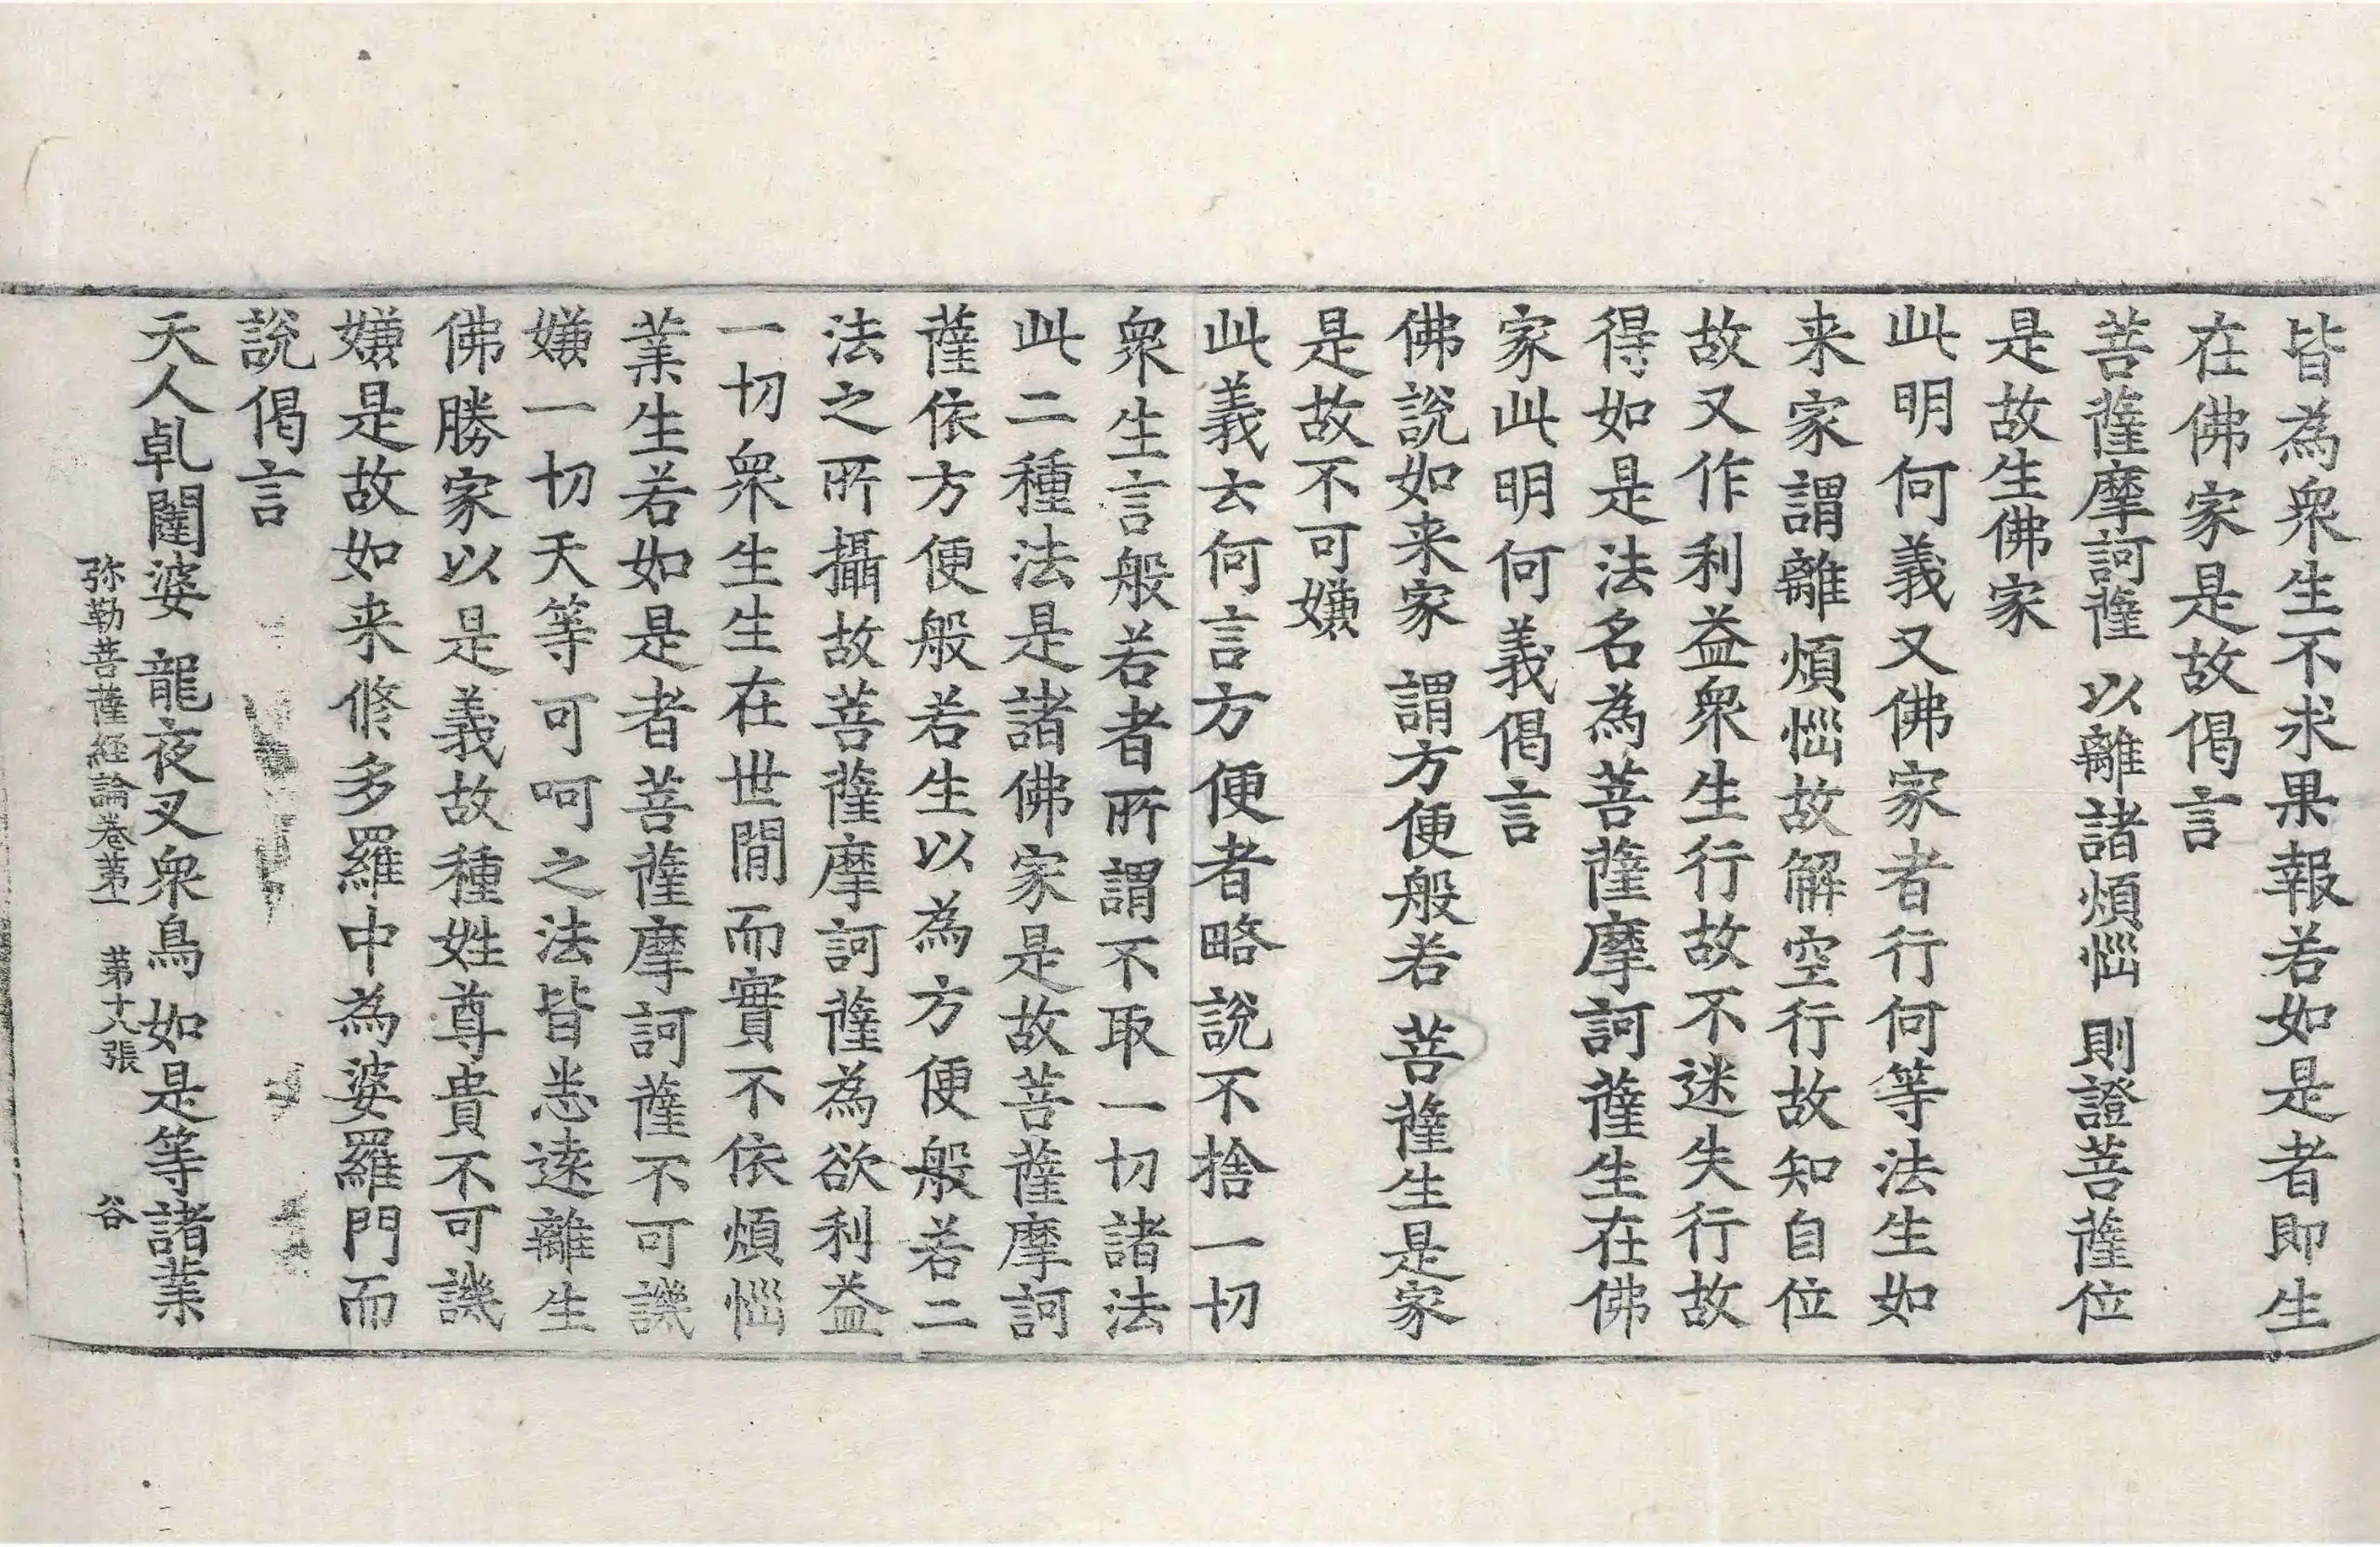 皆為衆生不求果報若如是者即生
在佛家是故偈言
菩薩摩訶薩 以離諸煩惱 則證菩薩位
是故生佛家
此明何義又佛家者行何等法生如
来家謂離煩惱故解空行故知自位
故又作利益衆生行故不迷失行故
得如是法名為菩薩摩訶薩生在佛
家此明何義偈言
佛說如来家 謂方便般若 菩薩生是家
是故不可嫌
此義云何言方便者略說不捨一切
衆生言般若者所謂不取一切諸法
此二種法是諸佛家是故菩薩摩訶
薩依方便般若生以為方便般若二
法之所攝故菩薩摩訶薩為欲利益
一切衆生生在世間而實不依煩惱
業生若如是者菩薩摩訶薩不可譏
嫌一切天等可呵之法皆悉遠離生
佛勝家以是義故種姓尊貴不可譏
嫌是故如来修多羅中為婆羅門而
說偈言
天人乹闥婆 龍夜叉衆鳥 如是等諸業
弥勒菩薩經論卷苐一 苐十八張 谷